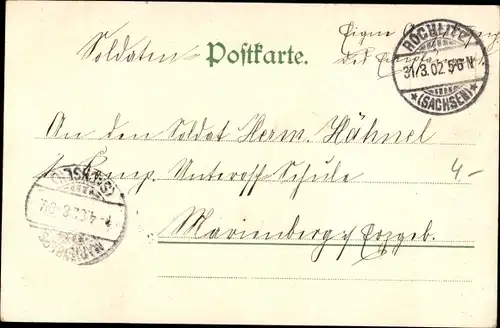 Soldaten Postkarte. Eigne
ROCHLITZ
31/3.02 5-6 N
*(SACHSEN)*
An den Soldat Herm. Hähnel
Komp. Unteroff Schule
4-
Marienberg i/ Erzgeb.